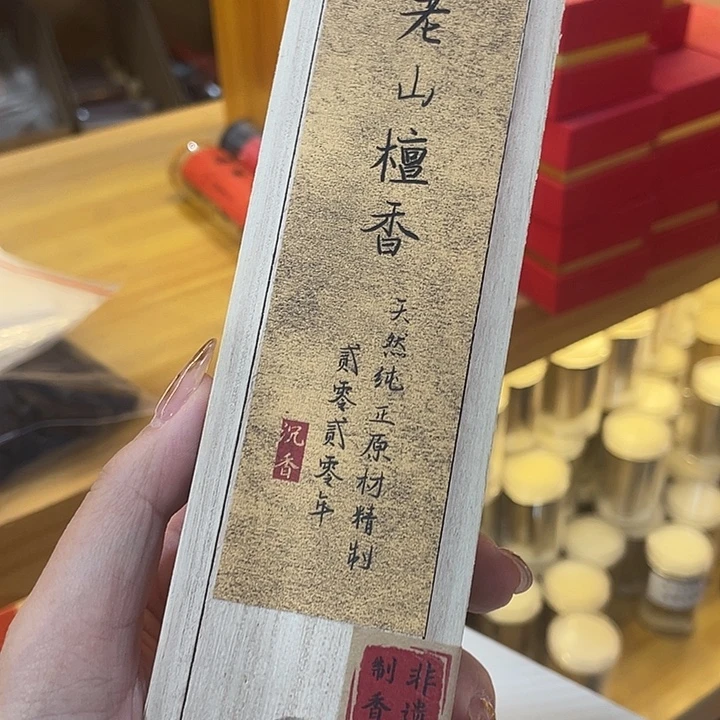 老山檀香
天然纯正原材精制
贰零贰零年
沉香
非遗
制香